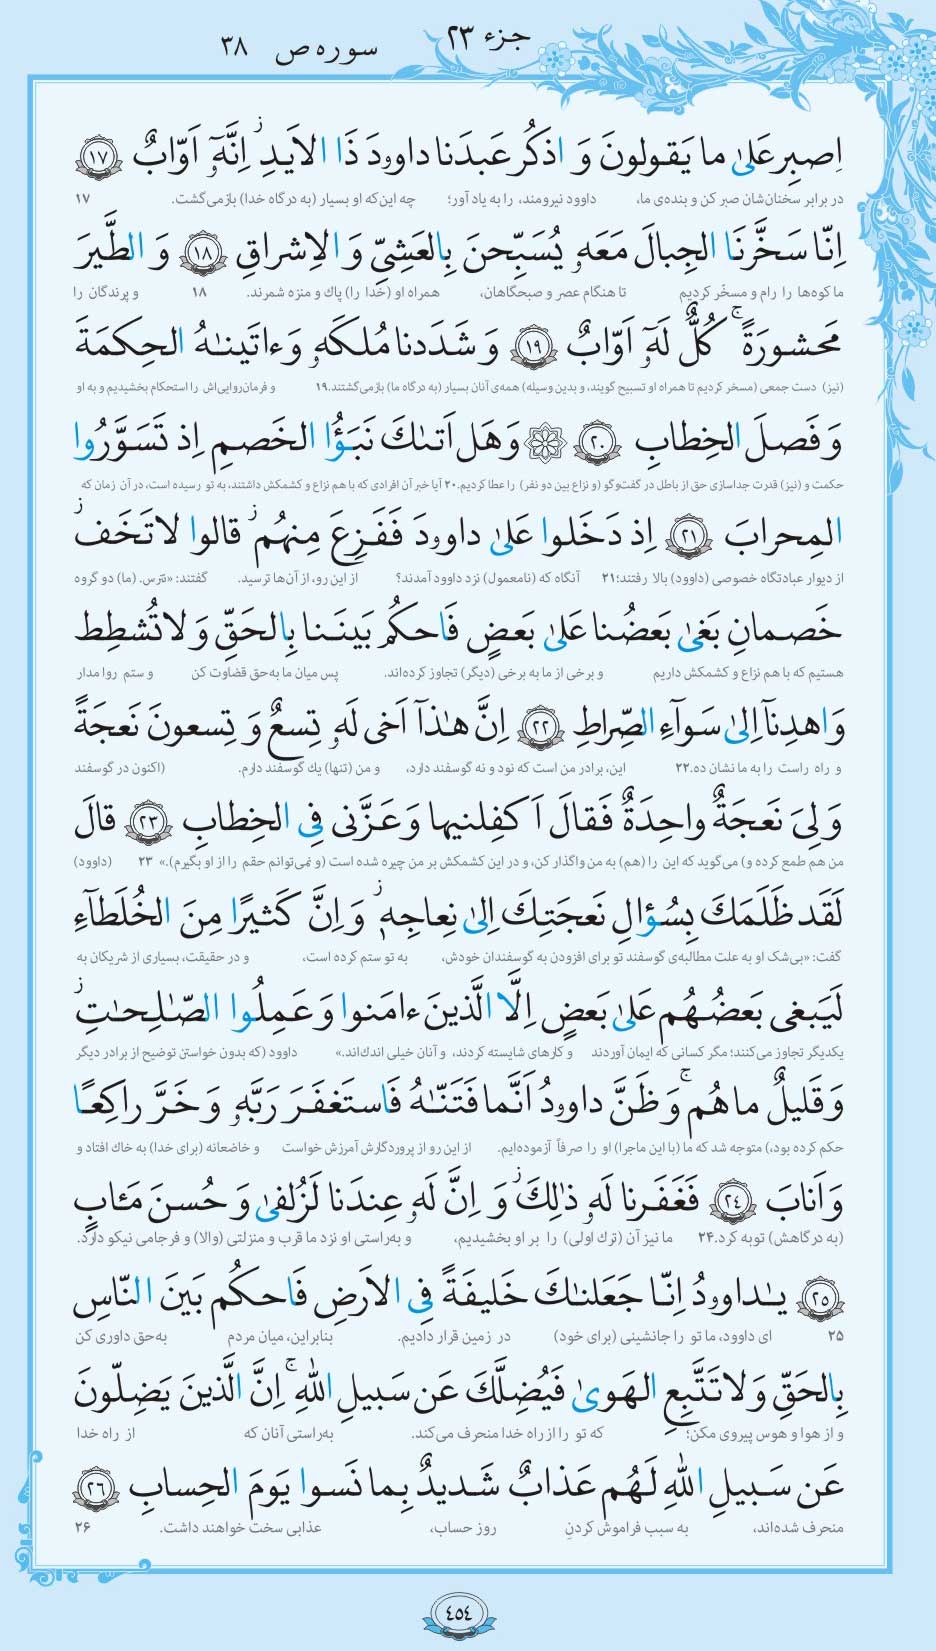 جزء ۲۳
سوره ص ۳۸
اِصبِر عَلىٰ ما يَقولونَ وَ اذكُر عَبدَنا داوودَ ذَا الاَيدِ ۖ اِنَّهُ اَوّابٌ ﴿۱۷﴾
در برابر سخنان‌شان صبر کن و بنده‌ی ما، داوود نیرومند، را به یاد آور؛ چه این‌که او بسیار (به درگاه خدا) بازمی‌گشت. ۱۷
اِنّا سَخَّرنَا الجِبالَ مَعَهُ يُسَبِّحنَ بِالعَشِيِّ وَ الاِشراقِ ﴿۱۸﴾ وَ الطَّيرَ
ما کوه‌ها را رام و مسخّر کردیم تا هنگام عصر و صبحگاهان، همراه او (خدا را) پاك و منزه شمرند. ۱۸ و پرندگان را
مَحشورَةً ۖ كُلٌّ لَهُ اَوّابٌ ﴿۱۹﴾ وَ شَدَدنا مُلكَهُ وَ ءاتَيناهُ الحِكمَةَ
(نیز) دست جمعی (مسخر کردیم تا همراه او تسبیح گویند، و بدین وسیله) همه‌ی آنان بسیار (به درگاه ما) بازمی‌گشتند.۱۹ و فرمان‌روایی‌اش را استحکام بخشیدیم و به او
وَ فَصلَ الخِطابِ ﴿۲۰﴾ وَ هَل اَتاكَ نَبَؤُا الخَصمِ اِذ تَسَوَّرُوا
حکمت و (نیز) قدرت جداسازی حق از باطل در گفت‌وگو (و نزاع بین دو نفر) را عطا کردیم.۲۰ آیا خبر آن افرادی که با هم نزاع و کشمکش داشتند، به تو رسیده است، در آن زمان که
المِحرابَ ﴿۲۱﴾ اِذ دَخَلوا عَلىٰ داوودَ فَفَزِعَ مِنهُم ۖ قالوا لا تَخَف ۖ
از دیوار عبادتگاه خصوصی (داوود) بالا رفتند؛۲۱ آنگاه که (نامعمول) نزد داوود آمدند؟ از این رو، از آن‌ها ترسید. گفتند: «نترس. (ما) دو گروه
خَصمانِ بَغىٰ بَعضُنا عَلىٰ بَعضٍ فَاحكُم بَينَنا بِالحَقِّ وَ لا تُشطِط
هستیم که با هم نزاع و کشمکش داریم و برخی از ما به برخی (دیگر) تجاوز کرده‌اند. پس میان ما به‌حق قضاوت کن و ستم روا مدار
وَ اهدِنآ اِلىٰ سَوآءِ الصِّراطِ ﴿۲۲﴾ اِنَّ هٰذآ اَخى لَهُ تِسعٌ وَ تِسعونَ نَعجَةً
و راه راست را به ما نشان ده.۲۲ این، برادر من است که نود و نه گوسفند دارد، و من (تنها) یك گوسفند دارم. (اکنون در گوسفند
وَ لِىَ نَعجَةٌ واحِدَةٌ فَقالَ اَكفِلنيها وَ عَزَّنى فِى الخِطابِ ﴿۲۳﴾ قالَ
من هم طمع کرده و) می‌گوید که این را (هم) به من واگذار کن، و در این کشمکش بر من چیره شده است (و نمی‌توانم حقم را از او بگیرم).» ۲۳ (داوود)
لَقَد ظَلَمَكَ بِسُؤالِ نَعجَتِكَ اِلىٰ نِعاجِهِ ۖ وَ اِنَّ كَثيرًا مِنَ الخُلَطآءِ
گفت: «بی‌شک او به علت مطالبه‌ی گوسفند تو برای افزودن به گوسفندان خودش، به تو ستم کرده است، و در حقیقت، بسیاری از شریکان به
لَيَبغى بَعضُهُم عَلىٰ بَعضٍ اِلَّا الَّذينَ ءامَنوا وَ عَمِلُوا الصّالِحاتِ ۖ
یکدیگر تجاوز می‌کنند؛ مگر کسانی که ایمان آوردند و کارهای شایسته کردند، و آنان خیلی اندك‌اند.» داوود (که بدون خواستن توضیح از برادر دیگر
وَ قَليلٌ ما هُم ۗ وَ ظَنَّ داوودُ اَنَّما فَتَنّاهُ فَاستَغفَرَ رَبَّهُ وَ خَرَّ راكِعًا
حکم کرده بود،) متوجه شد که ما (با این ماجرا) او را صرفاً آزموده‌ایم. از این رو از پروردگارش آمرزش خواست و خاضعانه (برای خدا) به خاك افتاد و
وَ اَنابَ ﴿۲٤﴾ فَغَفَرنا لَهُ ذٰلِكَ ۖ وَ اِنَّ لَهُ عِندَنا لَزُلفىٰ وَ حُسنَ مَئابٍ
(به درگاهش) توبه کرد.۲۴ ما نیز آن (ترك اولی) را بر او بخشیدیم، و به‌راستی او نزد ما قرب و منزلتی (والا) و فرجامی نیکو دارد.
﴿۲۵﴾ يـاداوودُ اِنّا جَعَلناكَ خَليفَةً فِى الاَرضِ فَاحكُم بَينَ النّاسِ
۲۵ ای داوود، ما تو را جانشینی (برای خود) در زمین قرار دادیم. بنابراین، میان مردم به‌حق داوری کن
بِالحَقِّ وَ لا تَتَّبِعِ الهَوىٰ فَيُضِلَّكَ عَن سَبيلِ اللهِ ۚ اِنَّ الَّذينَ يَضِلّونَ
و از هوا و هوس پیروی مکن؛ که تو را از راه خدا منحرف می‌کند. به‌راستی آنان که از راه خدا
عَن سَبيلِ اللهِ لَهُم عَذابٌ شَديدٌ بِما نَسوا يَومَ الحِسابِ ﴿۲٦﴾
منحرف شده‌اند، به سبب فراموش کردنِ روز حساب، عذابی سخت خواهند داشت. ۲۶
٤٥٤